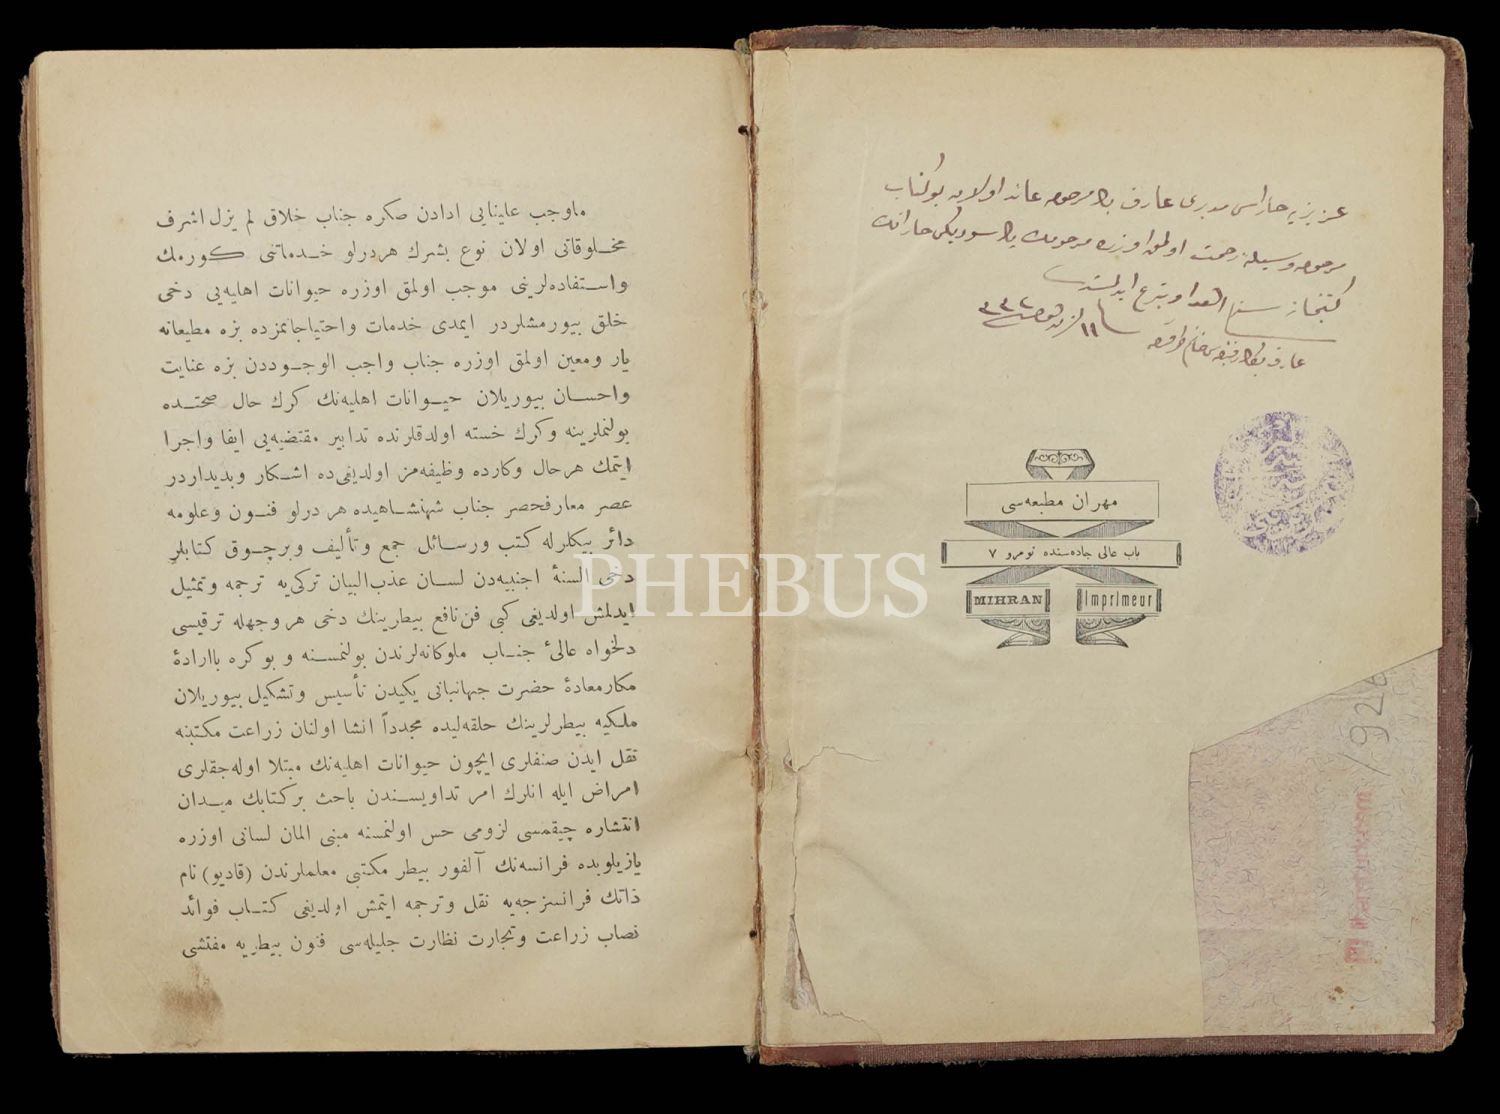 عزیزیه حاراسی مدیری عارف بك مرحومه عائد اولان بو کتاب
مرحومه وسیلهٔ رحمت اولمق اوزره مرحومك پك سودیکی حارانك
کتبخانه سنه اهدا و تبرع ایدلمشدر
مهران مطبعه‌سی
باب عالی جاده‌سنده نومرو ٧
MIHRAN Imprimeur
ماوجب علینایی ادادن صکره جناب خلاق لم یزل اشرف
مخلوقاتی اولان نوع بشرك هردرلو خدماتنی کوره‌رك
واستفاده‌لرینی موجب اولمق اوزره حیوانات اهلیه‌یی دخی
خلق بیورمشلردر ایمدی خدمات واحتیاجاتمزده بزه مطیعانه
یار ومعین اولمق اوزره جناب واجب الوجوددن بزه عنایت
واحسان بیوریلان حیوانات اهلیه‌نك کرك حال صحتده
بولنملرینه وکرك خسته اولدقلرنده تدابیر مقتضیه‌یی ایفا واجرا
ایتمك هرحال وکارده وظیفه‌مز اولدیغی‌ده اشکار وبدیداردر
عصر معارفحصر جناب شهنشاهیده هر درلو فنون وعلومه
دائر بیکلرله کتب ورسائل جمع وتألیف وبرچوق کتابلر
دخی السنهٔ اجنبیه‌دن لسان عذب‌البیان ترکی‌یه ترجمه وتمثیل
ایدلمش اولدیغی کبی فن نافع بیطرینك دخی هر وجهله ترقیسی
دلخواه عالیٔ جناب ملوکانه‌لرندن بولنمسنه و بو کره باارادهٔ
مکارمعادهٔ حضرت جهانبانی یکیدن تأسیس وتشکیل بیوریلان
ملکیه بیطرلرینك حلقه‌لیده مجدداً انشا اولنان زراعت مکتبنه
نقل ایدن صنفلری ایچون حیوانات اهلیه‌نك مبتلا اوله‌جقلری
امراض ایله انلرك امر تداویسندن باحث برکتابك میدان
انتشاره چیقمسی لزومی حس اولنمسنه مبنی المان لسانی اوزره
یازیلوبده فرانسه‌نك آلفور بیطر مکتبی معلملرندن (قادیو) نام
ذاتك فرانسزجه‌یه نقل وترجمه ایتمش اولدیغی کتاب فوائد
نصاب زراعت وتجارت نظارت جلیله‌سی فنون بیطریه مفتشی
PHEBUS